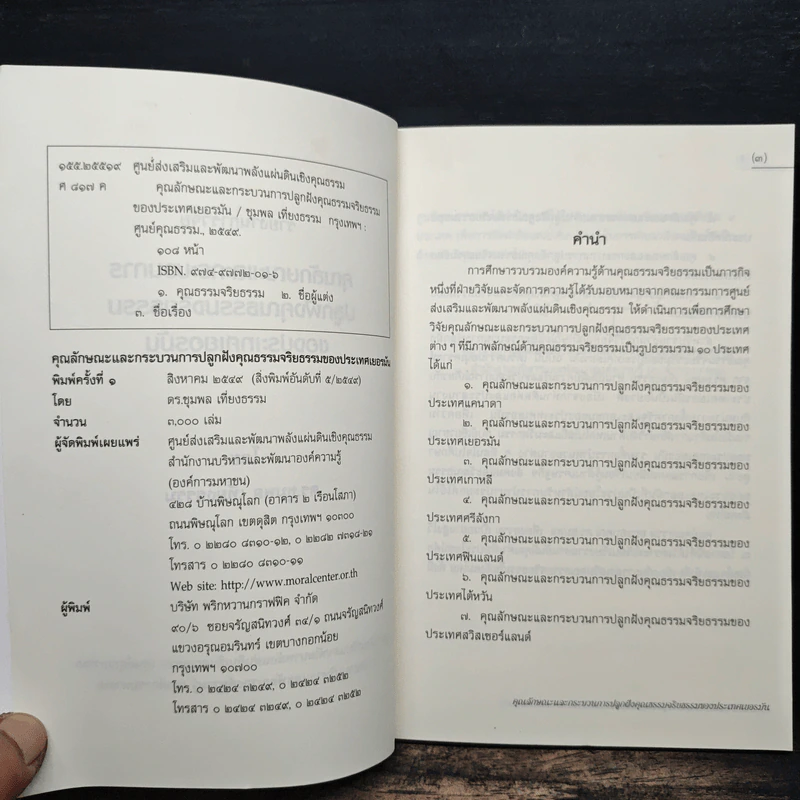 ๑๕๕.๒๕๕๑๙ ศูนย์ส่งเสริมและพัฒนาพลังแผ่นดินเชิงคุณธรรม
ศ ๘๑๗ ค คุณลักษณะและกระบวนการปลูกฝังคุณธรรมจริยธรรม
ของประเทศเยอรมัน / ชุมพล เที่ยงธรรม กรุงเทพฯ :
ศูนย์คุณธรรม., ๒๕๔๙.
๑๐๘ หน้า
ISBN. ๙๗๔-๙๗๗๒-๐๑-๖
๑. คุณธรรมจริยธรรม ๒. ชื่อผู้แต่ง
๓. ชื่อเรื่อง
คุณลักษณะและกระบวนการปลูกฝังคุณธรรมจริยธรรมของประเทศเยอรมัน
พิมพ์ครั้งที่ ๑ สิงหาคม ๒๕๔๙ (สิ่งพิมพ์อันดับที่ ๕/๒๕๔๙)
โดย ดร.ชุมพล เที่ยงธรรม
จำนวน ๓,๐๐๐ เล่ม
ผู้จัดพิมพ์เผยแพร่ ศูนย์ส่งเสริมและพัฒนาพลังแผ่นดินเชิงคุณธรรม
สำนักงานบริหารและพัฒนาองค์ความรู้
(องค์การมหาชน)
๔๒๘ บ้านพิษณุโลก (อาคาร ๒ เรือนโสภา)
ถนนพิษณุโลก เขตดุสิต กรุงเทพฯ ๑๐๓๐๐
โทร. ๐ ๒๒๘๐ ๘๓๑๐-๑๒, ๐ ๒๒๘๒ ๗๓๑๘-๒๑
โทรสาร ๐ ๒๒๘๐ ๘๓๑๐-๑๑
Web site: http://www.moralcenter.or.th
ผู้พิมพ์ บริษัท พริกหวานกราฟฟิค จำกัด
๙๐/๖ ซอยจรัญสนิทวงศ์ ๓๔/๑ ถนนจรัญสนิทวงศ์
แขวงอรุณอมรินทร์ เขตบางกอกน้อย
กรุงเทพฯ ๑๐๗๐๐
โทร. ๐ ๒๔๒๔ ๓๒๔๙, ๐ ๒๔๒๔ ๓๒๕๒
โทรสาร ๐ ๒๔๒๔ ๓๒๔๙, ๐ ๒๔๒๔ ๓๒๕๒
(๓)
คำนำ
การศึกษารวบรวมองค์ความรู้ด้านคุณธรรมจริยธรรมเป็นภารกิจ
หนึ่งที่ฝ่ายวิจัยและจัดการความรู้ได้รับมอบหมายจากคณะกรรมการศูนย์
ส่งเสริมและพัฒนาพลังแผ่นดินเชิงคุณธรรม ให้ดำเนินการเพื่อการศึกษา
วิจัยคุณลักษณะและกระบวนการปลูกฝังคุณธรรมจริยธรรมของประเทศ
ต่าง ๆ ที่มีภาพลักษณ์ด้านคุณธรรมจริยธรรมเป็นรูปธรรมรวม ๑๐ ประเทศ
ได้แก่
๑. คุณลักษณะและกระบวนการปลูกฝังคุณธรรมจริยธรรมของ
ประเทศแคนาดา
๒. คุณลักษณะและกระบวนการปลูกฝังคุณธรรมจริยธรรมของ
ประเทศเยอรมัน
๓. คุณลักษณะและกระบวนการปลูกฝังคุณธรรมจริยธรรมของ
ประเทศเกาหลี
๔. คุณลักษณะและกระบวนการปลูกฝังคุณธรรมจริยธรรมของ
ประเทศศรีลังกา
๕. คุณลักษณะและกระบวนการปลูกฝังคุณธรรมจริยธรรมของ
ประเทศฟินแลนด์
๖. คุณลักษณะและกระบวนการปลูกฝังคุณธรรมจริยธรรมของ
ประเทศไต้หวัน
๗. คุณลักษณะและกระบวนการปลูกฝังคุณธรรมจริยธรรมของ
ประเทศสวิสเซอร์แลนด์
คุณลักษณะและกระบวนการปลูกฝังคุณธรรมจริยธรรมของประเทศเยอรมัน